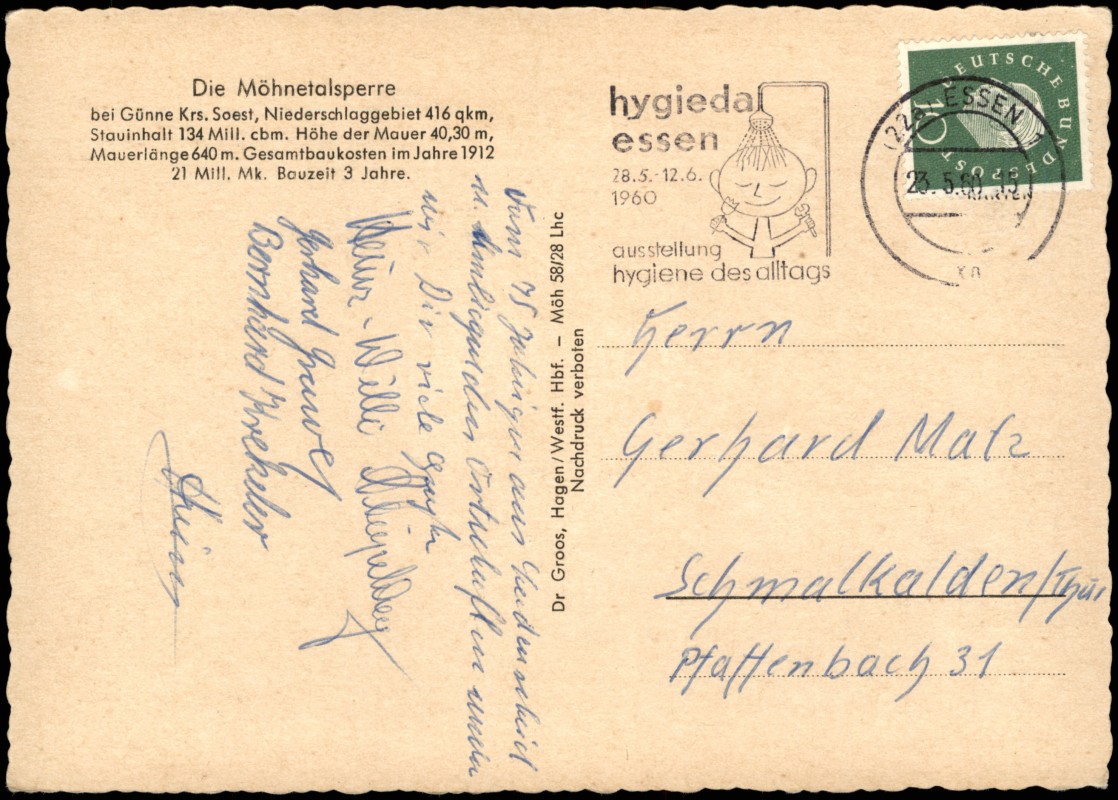 Die Möhnetalsperre
bei Günne Krs. Soest, Niederschlaggebiet 416 qkm,
Stauinhalt 134 Mill. cbm. Höhe der Mauer 40,30 m,
Mauerlänge 640 m. Gesamtbaukosten im Jahre 1912
21 Mill. Mk. Bauzeit 3 Jahre.
Vom 75 aus
u. umliegenden Ortschaften
wir Dir viele Grüße
Heinz-Willi
Gerhard
Bernhard Krekeler
Dr Groos, Hagen/Westf. Hbf. – Möh 58/28 Lhc
Nachdruck verboten
hygieda
essen
28.5.-12.6.
1960
ausstellung
hygiene des alltags
DEUTSCHE BUNDESPOST
10
(22a) ESSEN 1
23.5.60.-15
xn
Herrn
Gerhard Malz
Schmalkalden/Thür
Pfaffenbach 31